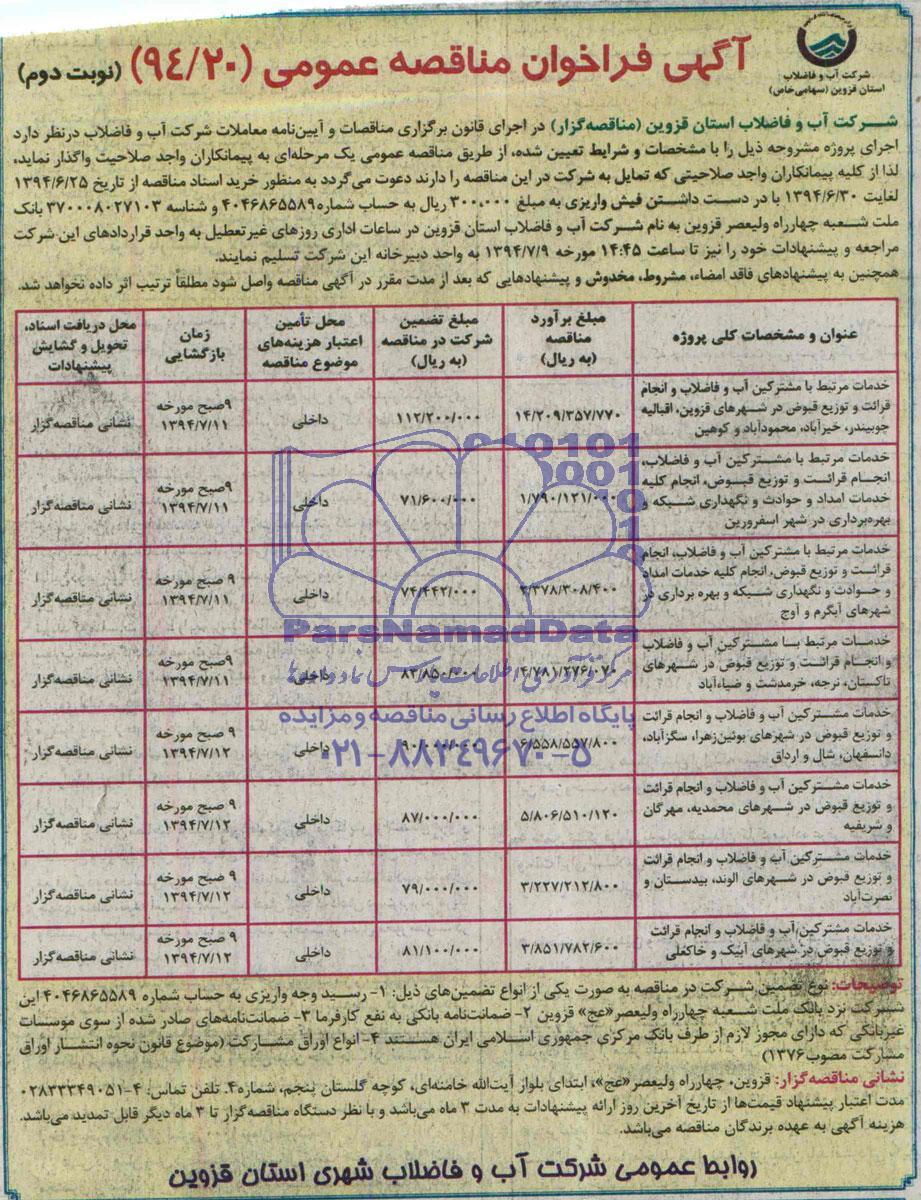 شرکت آب و فاضلاب
استان قزوین (سهامی خاص)
آگهی فراخوان مناقصه عمومی (۹۴/۲۰) (نوبت دوم)
شرکت آب و فاضلاب استان قزوین (مناقصه‌گزار) در اجرای قانون برگزاری مناقصات و آیین‌نامه معاملات شرکت آب و فاضلاب درنظر دارد
اجرای پروژه مشروحه ذیل را با مشخصات و شرایط تعیین شده، از طریق مناقصه عمومی یک مرحله‌ای به پیمانکاران واجد صلاحیت واگذار نماید،
لذا از کلیه پیمانکاران واجد صلاحیتی که تمایل به شرکت در این مناقصه را دارند دعوت می‌گردد به منظور خرید اسناد مناقصه از تاریخ ۱۳۹۴/۶/۲۵
لغایت ۱۳۹۴/۶/۳۰ با در دست داشتن فیش واریزی به مبلغ ۳۰۰،۰۰۰ ریال به حساب شماره ۴۰۴۶۸۶۵۵۸۹ و شناسه ۳۷۰۰۰۸۰۲۷۱۰۳ بانک
ملت شعبه چهارراه ولیعصر قزوین به نام شرکت آب و فاضلاب استان قزوین در ساعات اداری روزهای غیرتعطیل به واحد قراردادهای این شرکت
مراجعه و پیشنهادات خود را نیز تا ساعت ۱۴:۴۵ مورخه ۱۳۹۴/۷/۹ به واحد دبیرخانه این شرکت تسلیم نمایند.
همچنین به پیشنهادهای فاقد امضاء، مشروط، مخدوش و پیشنهادهایی که بعد از مدت مقرر در آگهی مناقصه واصل شود مطلقاً ترتیب اثر داده نخواهد شد.
عنوان و مشخصات کلی پروژه
مبلغ برآورد
مناقصه
(به ریال)
مبلغ تضمین
شرکت در مناقصه
(به ریال)
محل تأمین
اعتبار هزینه‌های
موضوع مناقصه
زمان
بازگشایی
محل دریافت اسناد،
تحویل و گشایش
پیشنهادات
خدمات مرتبط با مشترکین آب و فاضلاب و انجام
قرائت و توزیع قبوض در شهرهای قزوین، اقبالیه
جوبیندر، خیرآباد، محمودآباد و کوهین
۱۴/۲۰۹/۳۵۷/۷۷۰
۱۱۲/۲۰۰/۰۰۰
داخلی
۹صبح مورخه
۱۳۹۴/۷/۱۱
نشانی مناقصه‌گزار
خدمات مرتبط با مشترکین آب و فاضلاب،
انجام قرائت و توزیع قبوض، انجام کلیه
خدمات امداد و حوادث و نگهداری شبکه و
بهره‌برداری در شهر اسفرورین
۱/۷۹۰/۱۳۱/۰۰۰
۷۱/۶۰۰/۰۰۰
داخلی
۹صبح مورخه
۱۳۹۴/۷/۱۱
نشانی مناقصه‌گزار
خدمات مرتبط با مشترکین آب و فاضلاب، انجام
قرائت و توزیع قبوض، انجام کلیه خدمات امداد
و حوادث و نگهداری شبکه و بهره برداری در
شهرهای آبگرم و آوج
۲/۳۷۸/۳۰۸/۴۰۰
۷۴/۴۴۲/۰۰۰
داخلی
۹ صبح مورخه
۱۳۹۴/۷/۱۱
نشانی مناقصه‌گزار
خدمات مرتبط با مشترکین آب و فاضلاب
و انجام قرائت و توزیع قبوض در شهرهای
تاکستان، نرجه، خرمدشت و ضیاءآباد
۴/۷۸۱/۲۷۶/۰۷۰
۸۳/۸۵۰/۰۰۰
داخلی
۹صبح مورخه
۱۳۹۴/۷/۱۱
نشانی مناقصه‌گزار
خدمات مشترکین آب و فاضلاب و انجام قرائت
و توزیع قبوض در شهرهای بوئین‌زهرا، سگزآباد،
دانسفهان، شال و ارداق
۶/۵۵۸/۵۵۷/۸۰۰
۹۰/۰۰۰/۰۰۰
داخلی
۹ صبح مورخه
۱۳۹۴/۷/۱۲
نشانی مناقصه‌گزار
خدمات مشترکین آب و فاضلاب و انجام قرائت
و توزیع قبوض در شهرهای محمدیه، مهرگان
و شریفیه
۵/۸۰۶/۵۱۰/۱۲۰
۸۷/۰۰۰/۰۰۰
داخلی
۹ صبح مورخه
۱۳۹۴/۷/۱۲
نشانی مناقصه‌گزار
خدمات مشترکین آب و فاضلاب و انجام قرائت
و توزیع قبوض در شهرهای الوند، بیدستان و
نصرت‌آباد
۳/۲۲۷/۲۱۲/۸۰۰
۷۹/۰۰۰/۰۰۰
داخلی
۹ صبح مورخه
۱۳۹۴/۷/۱۲
نشانی مناقصه‌گزار
خدمات مشترکین آب و فاضلاب و انجام قرائت
و توزیع قبوض در شهرهای آبیک و خاکعلی
۳/۸۵۱/۷۸۲/۶۰۰
۸۱/۱۰۰/۰۰۰
داخلی
۹ صبح مورخه
۱۳۹۴/۷/۱۲
نشانی مناقصه‌گزار
ParsNamadData
مرکز فرآوری اطلاعات پارس نماد داده‌ها
پایگاه اطلاع رسانی مناقصه و مزایده
۰۲۱-۸۸۳۴۹۶۷۰-۵
توضیحات: نوع تضمین شرکت در مناقصه به صورت یکی از انواع تضمین‌های ذیل: ۱- رسید وجه واریزی به حساب شماره ۴۰۴۶۸۶۵۵۸۹ این
شرکت نزد بانک ملت شعبه چهارراه ولیعصر«عج» قزوین ۲- ضمانت‌نامه بانکی به نفع کارفرما ۳- ضمانت‌نامه‌های صادر شده از سوی موسسات
غیربانکی که دارای مجوز لازم از طرف بانک مرکزی جمهوری اسلامی ایران هستند ۴- انواع اوراق مشارکت (موضوع قانون نحوه انتشار اوراق
مشارکت مصوب۱۳۷۶)
نشانی مناقصه‌گزار: قزوین، چهارراه ولیعصر«عج»، ابتدای بلوار آیت‌الله خامنه‌ای، کوچه گلستان پنجم، شماره۴. تلفن تماس: ۴-۰۲۸۳۳۳۴۹۰۵۱
مدت اعتبار پیشنهاد قیمت‌ها از تاریخ آخرین روز ارائه پیشنهادات به مدت ۳ ماه می‌باشد و با نظر دستگاه مناقصه‌گزار تا ۳ ماه دیگر قابل تمدید می‌باشد.
هزینه آگهی به عهده برندگان مناقصه می‌باشد.
روابط عمومی شرکت آب و فاضلاب شهری استان قزوین